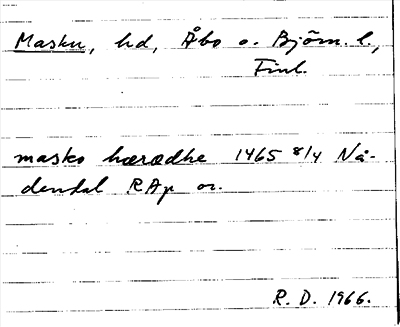 Masku, hd, Åbo o. Björn. l.,
Finl.
masko hæradhe 1465 8/4 Nå-
dendal RAp or.
R. D. 1966.